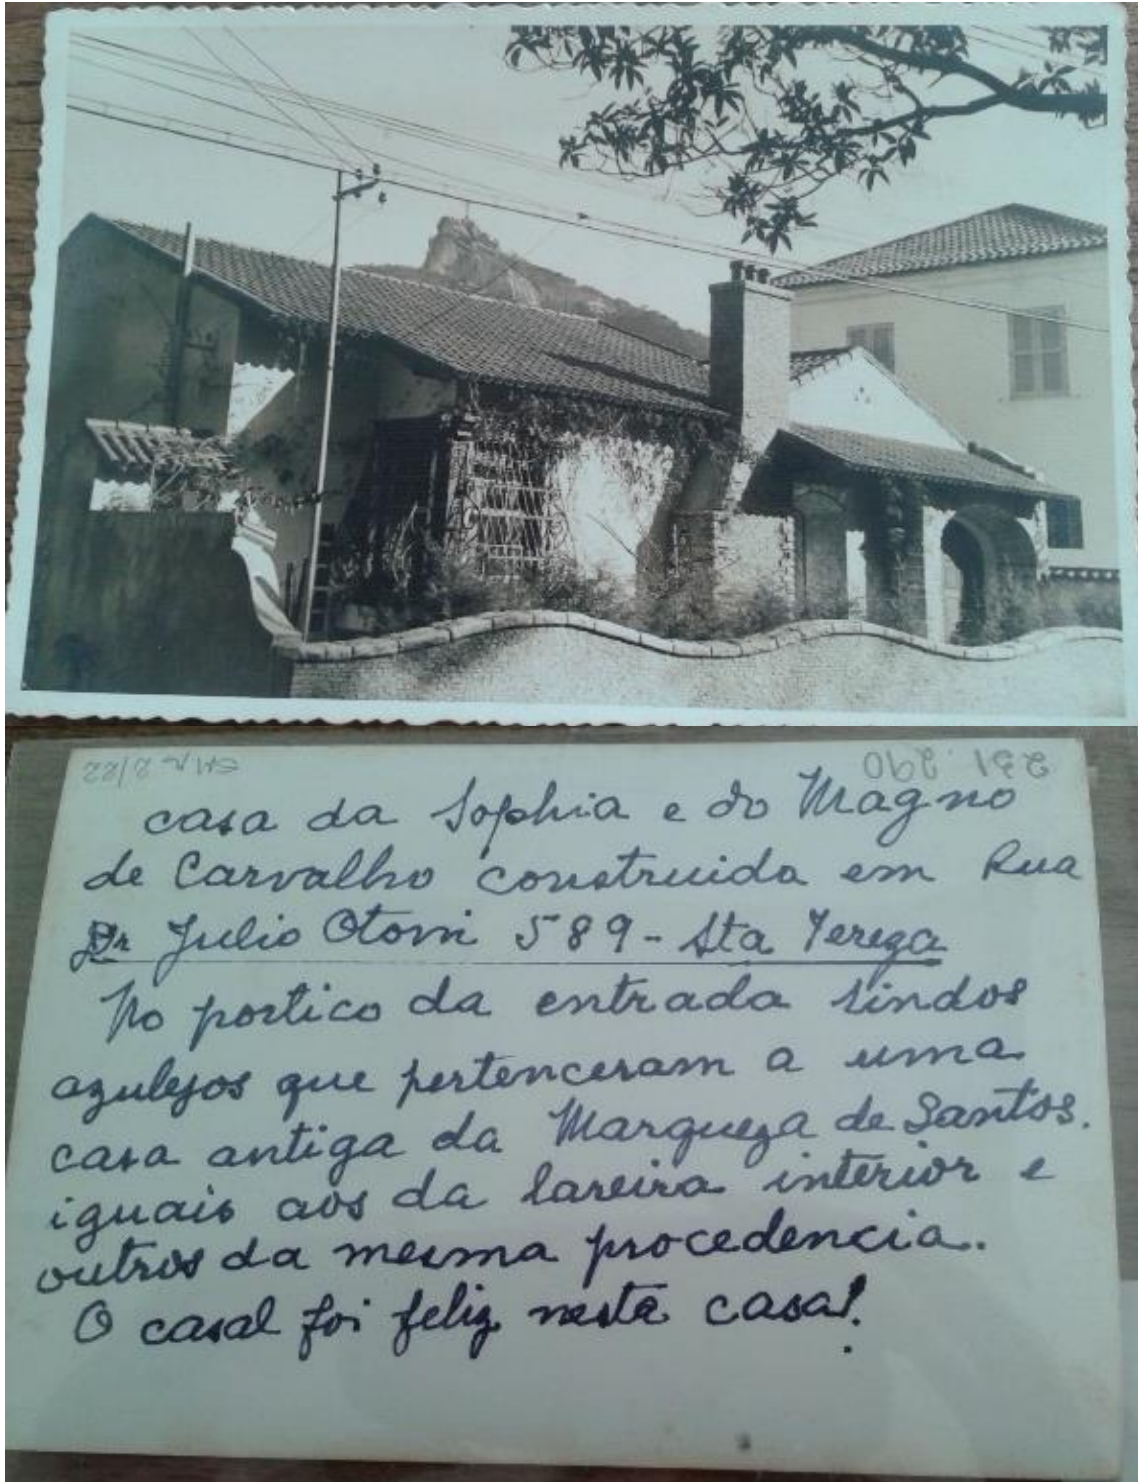 231.290
casa da Sophia e do Magno
de Carvalho construida em Rua
Dr Julio Otoni 589 - Sta Tereza
No portico da entrada lindos
azulejos que pertenceram a uma
casa antiga da Marqueza de Santos.
iguais aos da lareira interior e
outros da mesma procedencia.
O casal foi feliz nesta casa!